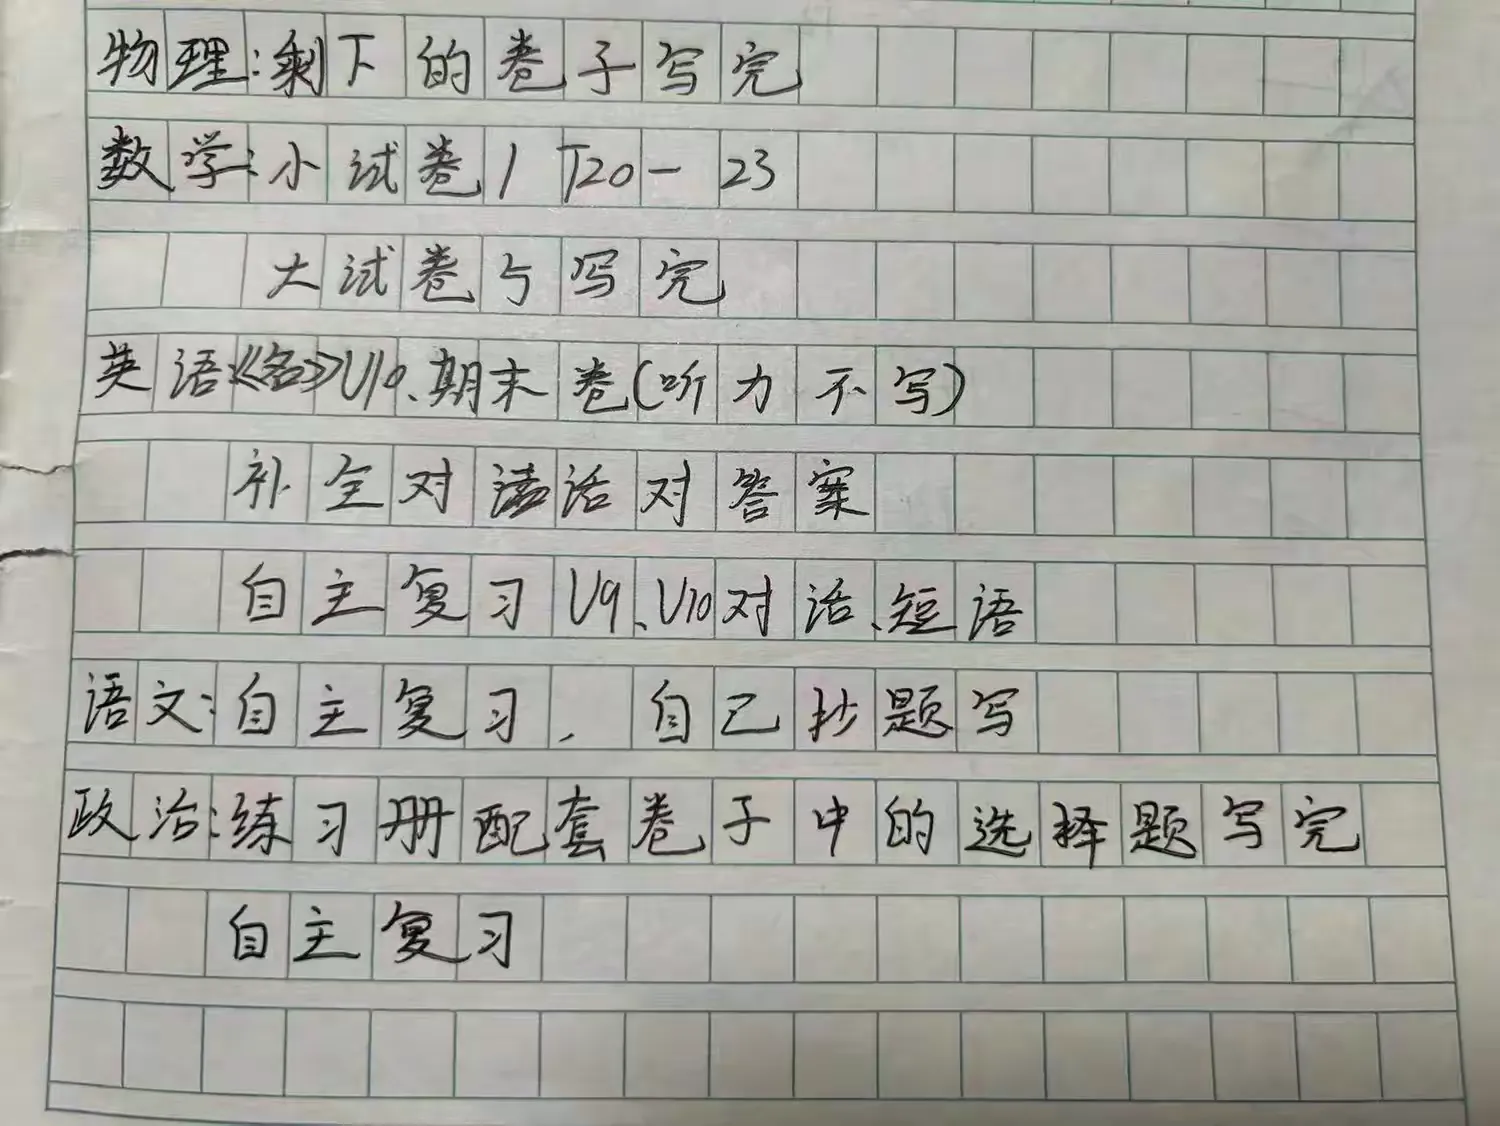 物理:剩下的卷子写完
数学:小试卷1 T20-23
大试卷5写完
英语:《名》U10、期末卷(听力不写)
补全对话对答案
自主复习U9、U10对话、短语
语文:自主复习,自己抄题写
政治:练习册配套卷子中的选择题写完
自主复习